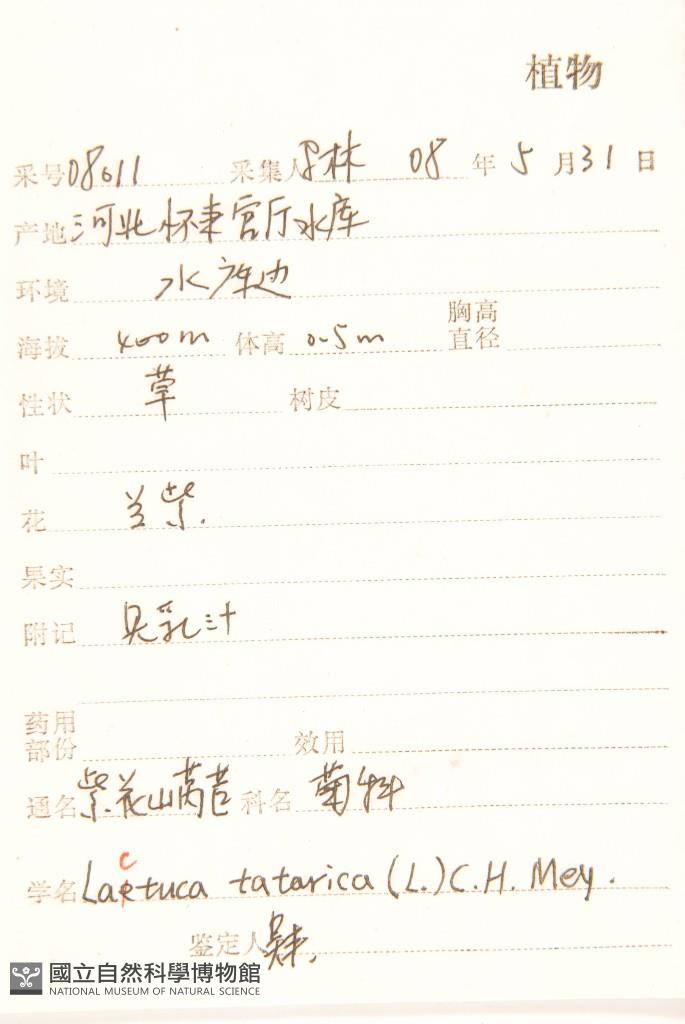 植物
采号 08011 采集人 林 08 年 5 月 31 日
产地 河北怀来官厅水库
环境 水库边
海拔 400m 体高 0.5m 胸高直径
性状 草 树皮
叶
花 兰紫.
果实
附记 具乳汁
药用部份 效用
通名 紫花山莴苣 科名 菊科
学名 Lactuca tatarica (L.) C.H. Mey.
鉴定人
國立自然科學博物館
NATIONAL MUSEUM OF NATURAL SCIENCE